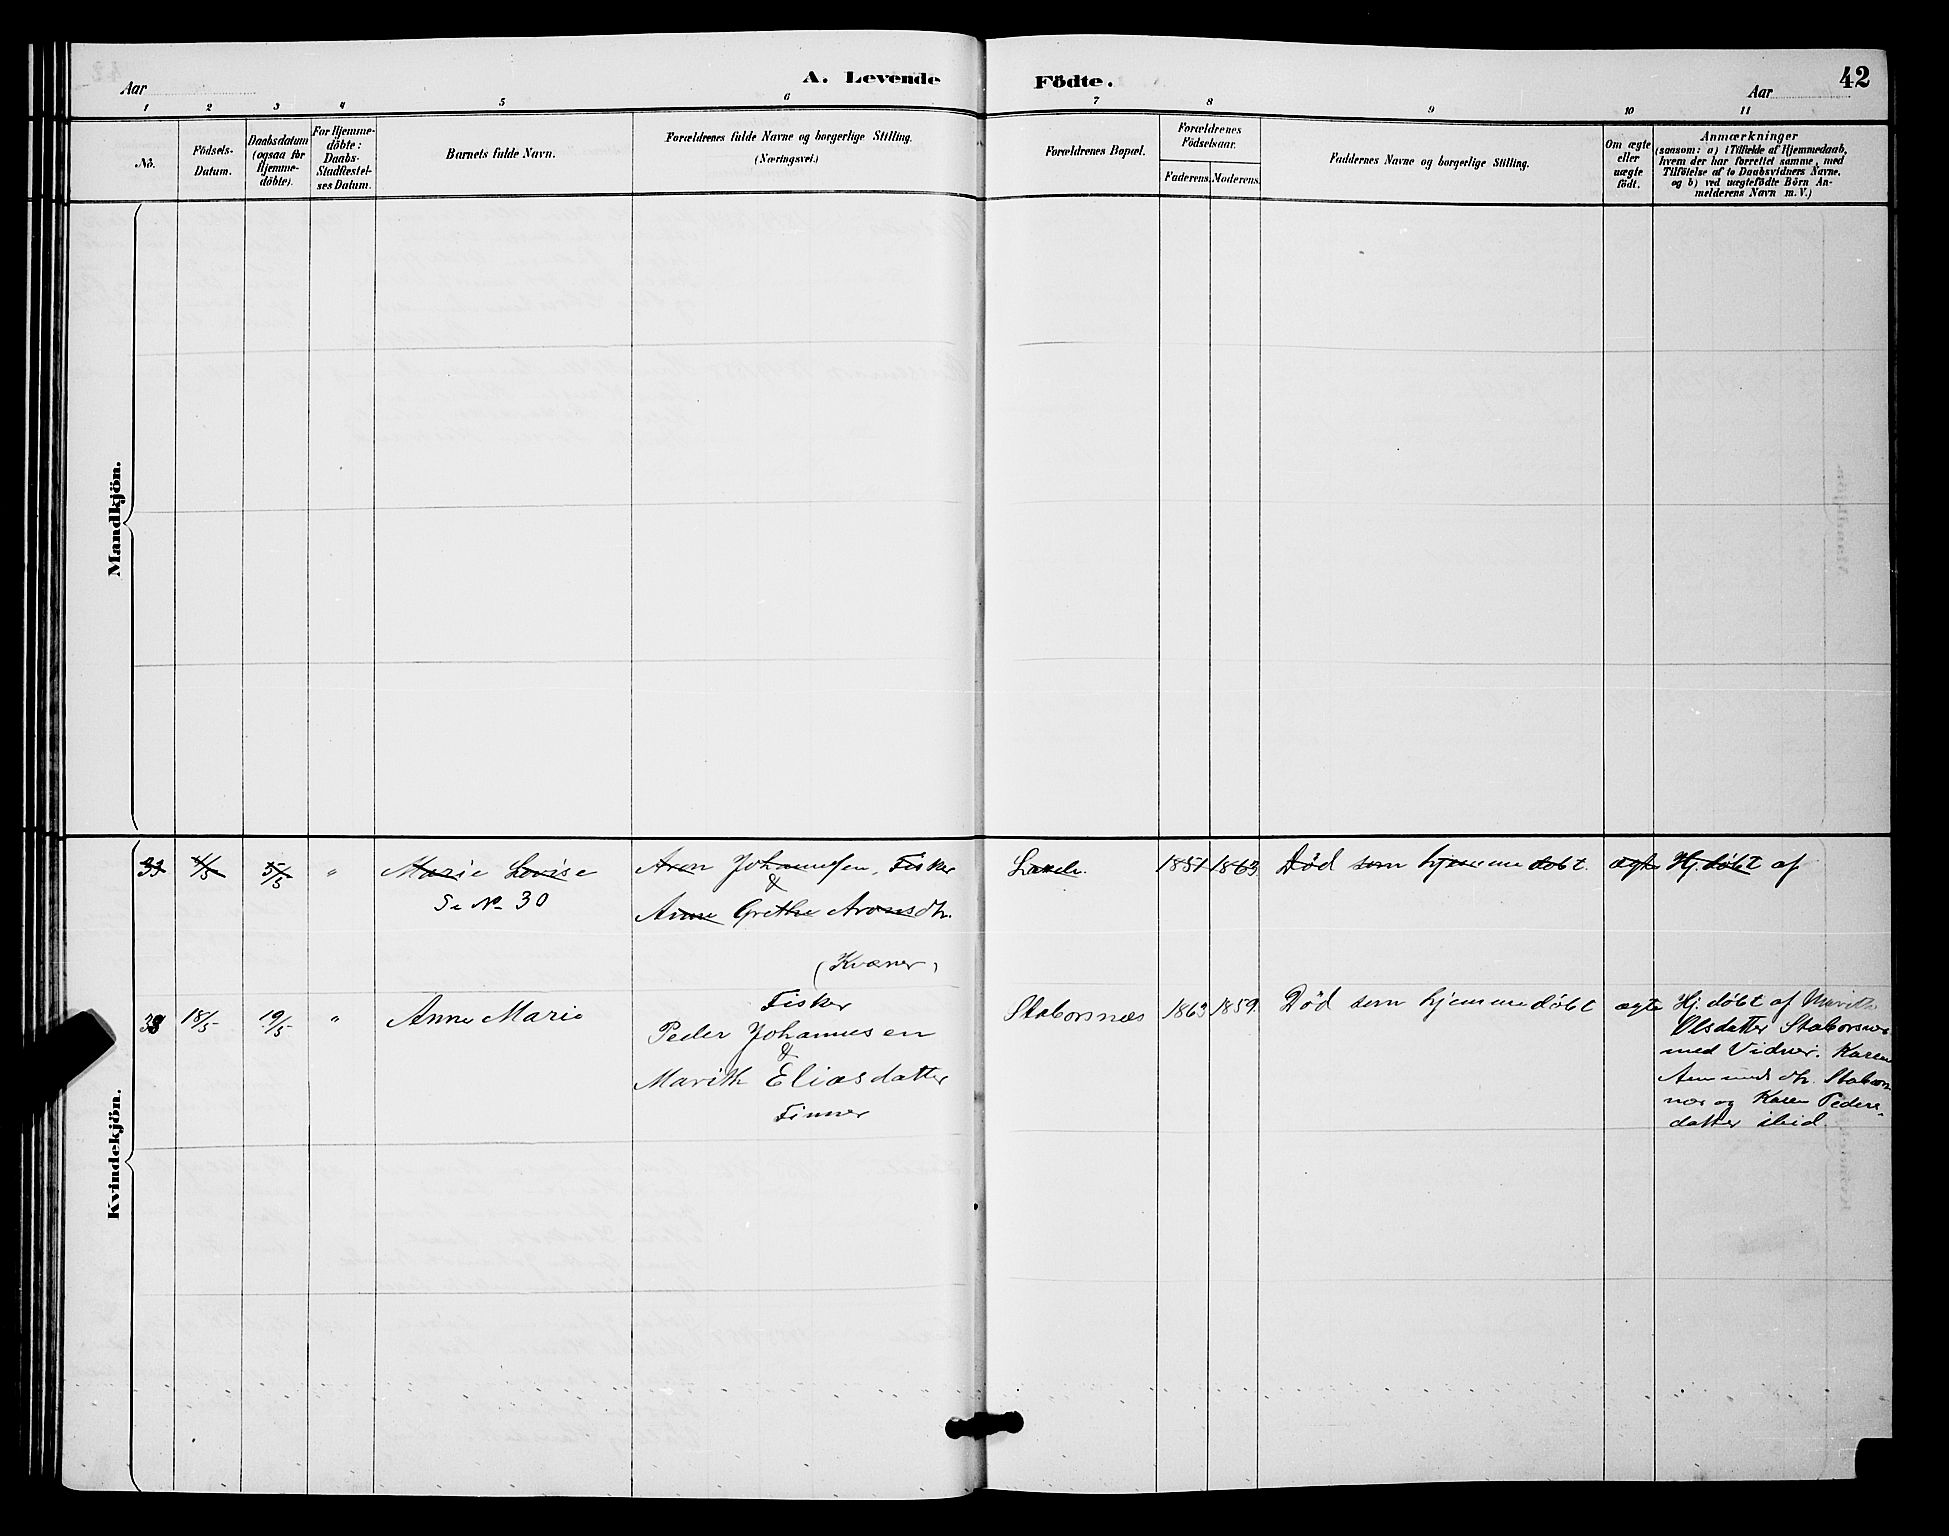 A. Levende Födte.
42
Aar
Aar
1 2 3 4 5 6 7 8 9 10 11
No.
Födsels-
Datum.
Daabsdatum
(ogsaa for
Hjemme-
döbte).
For Hjemme-
döbte:
Daabs-
Stadfæstel-
ses Datum.
Barnets fulde Navn.
Forældrenes fulde Navne og borgerlige Stilling.
(Næringsvei.)
Forældrenes Bopæl.
Forældrenes
Födselsaar.
Faderens. Moderens.
Faddernes Navne og borgerlige Stilling.
Om ægte
eller
uægte
födt.
Anmærkninger
(saasom: a) i Tilfælde af Hjemmedaab,
hvem der har forrettet samme, med
Tilföielse af to Daabsvidners Navne,
og b) ved uægtefödte Börn An-
melderens Navn m. V.)
Mandkjön.
Kvindekjön.
31 4/5 5/5 " Marie Lovise Aron Johannesen, Fisker
Se No 30 &
Anne Grethe Aronsdtr.
(Kvæner)
1851 1863 Död som hjemmedöbt. ægte Hj. döbt af
38 18/5 19/5 " Anne Marie Fisker
Peder Johannesen
&
Marith Eliasdatter
Finner
Staborsnæs 1863 1859 Död som hjemmedöbt ægte Hj. döbt af Marith
Olsdatter Staborsnes
med Vidner. Karen
Amundsdtr. Stabors
næs og Karen Peders-
datter ibid.